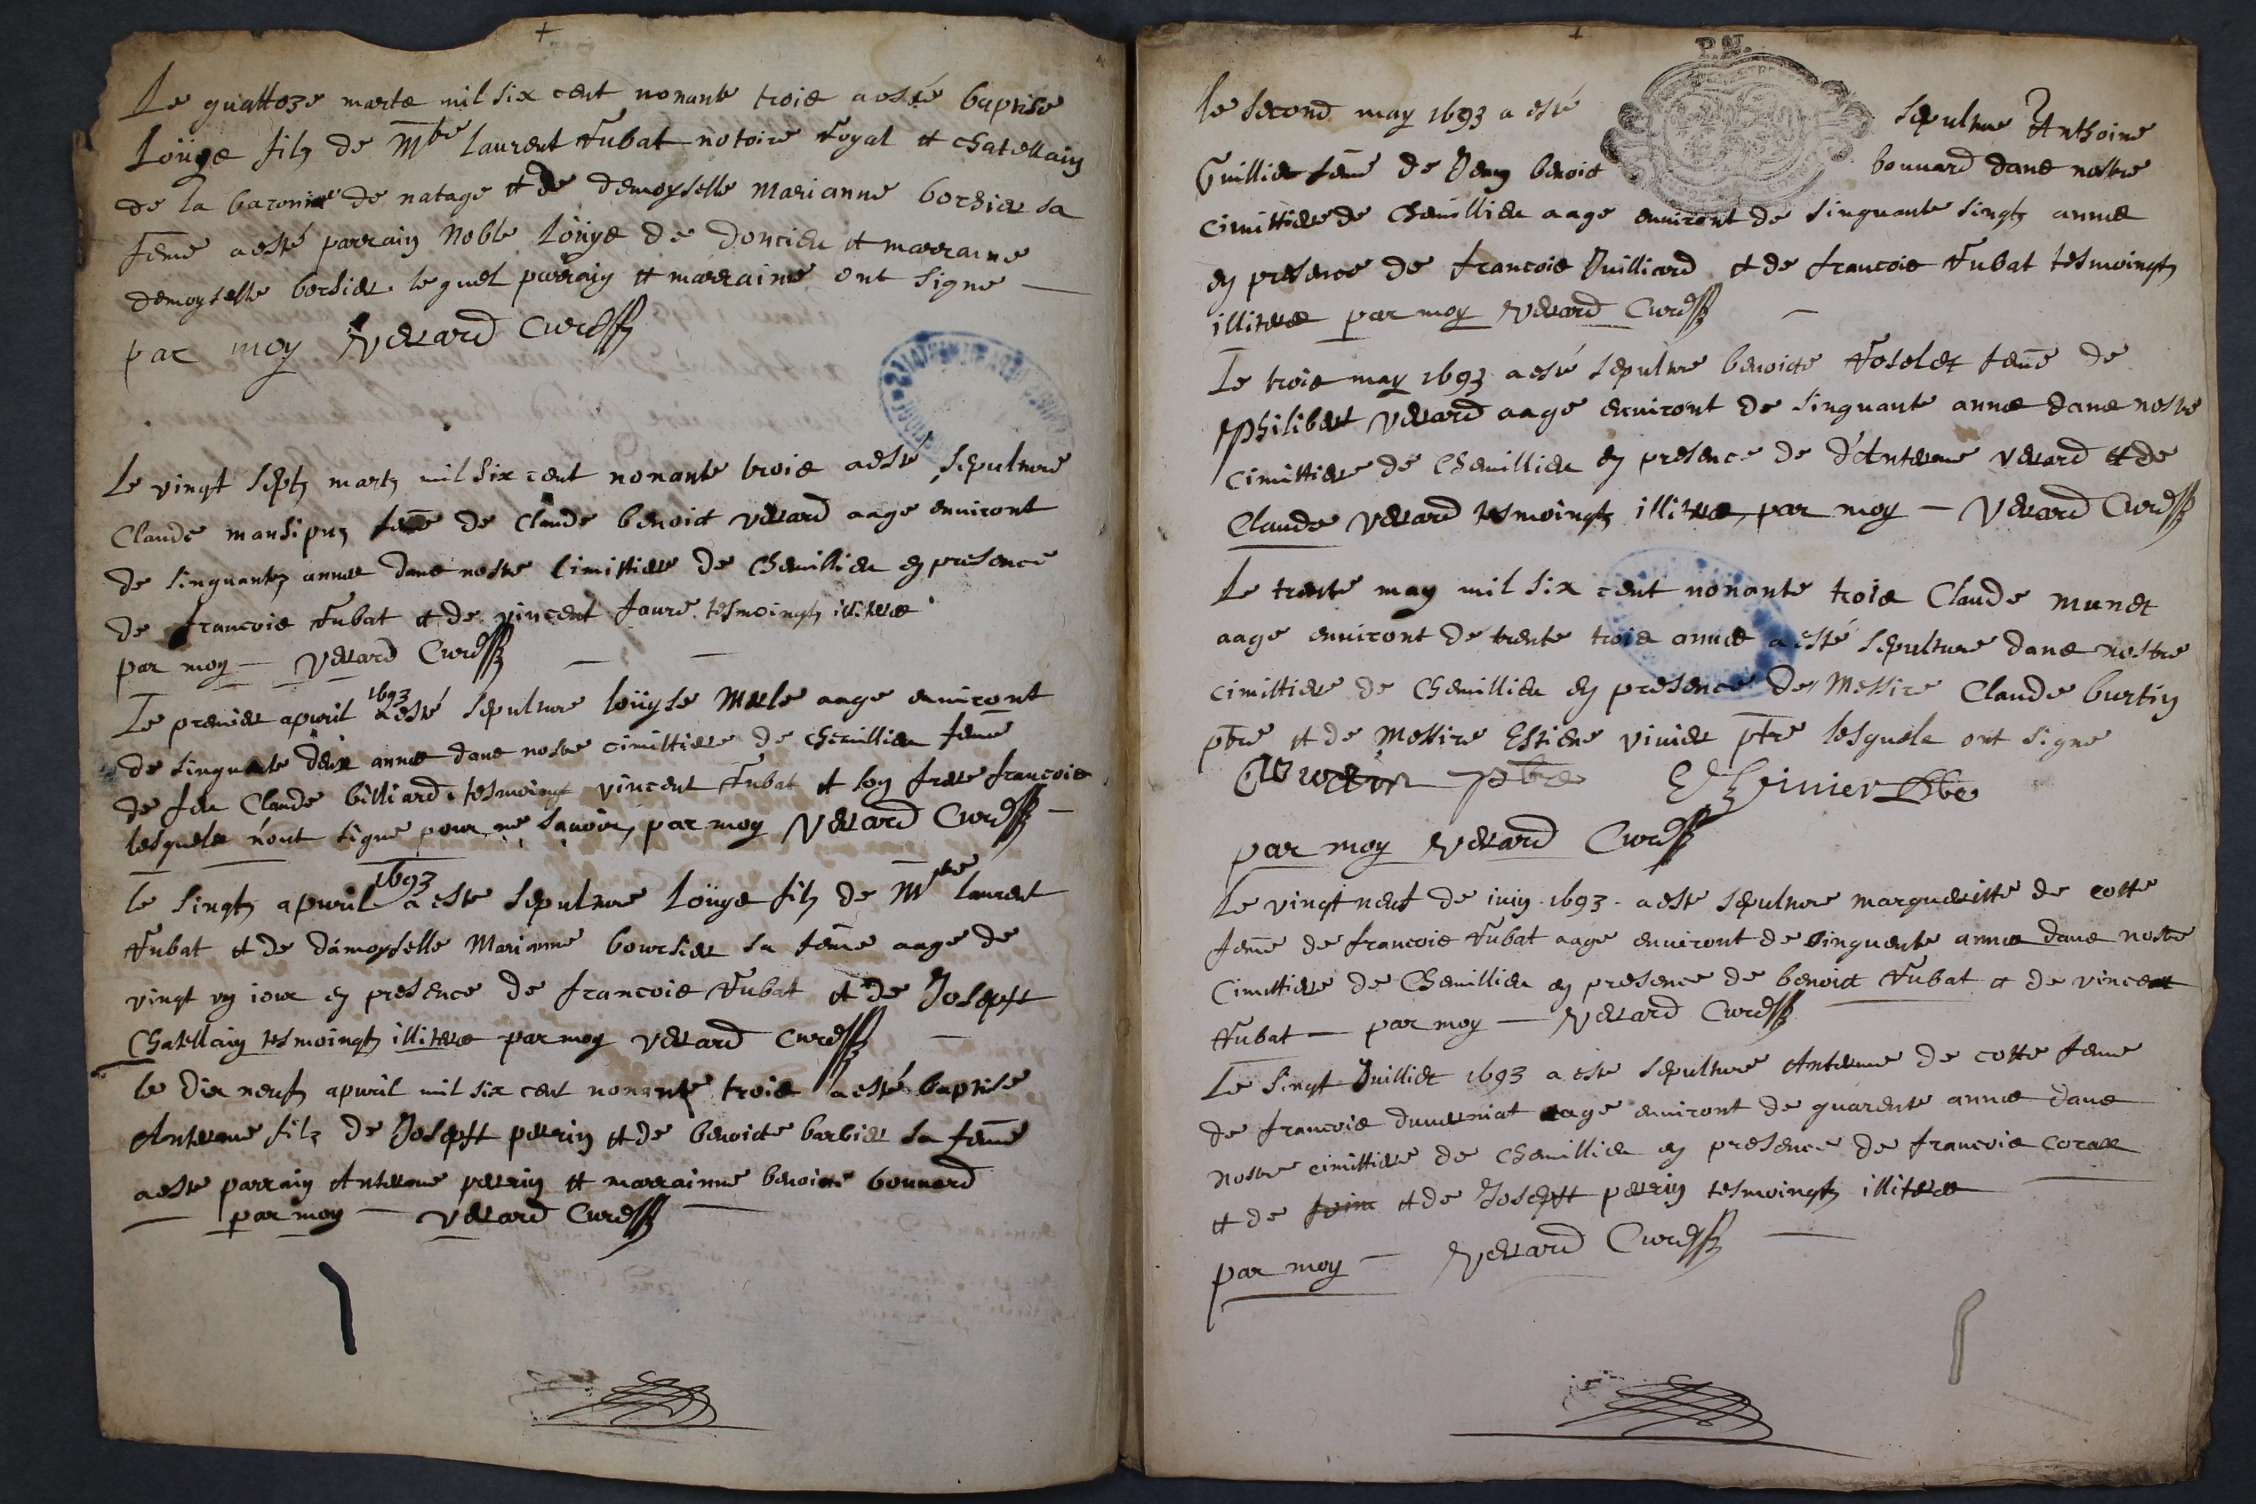 Le quattoze marts mil six cent nonante trois a esté baptisé
Loüys filz de Mtre Laurent Rubat notaire Royal et chatellain
de la baronie de natage et de demoyselle Marianne borsier sa
feme a esté parrain Noble Loüys de doncieu et marraine
demoyselle borsier lequel parrain et marraine ont signe
par moy Verard Curé
Le vingt septz martz mil six cent nonante trois a esté sepulture
Claude feme de Claude benoict Verard aage environt
de sinquantes annes dans nostre Cimittiere de Chemillieu en presence
de francois Rubat et de vincent faure tesmoingtz illiteres
par moy Verard Curé
Le premier apvril 1693 a esté sepulture loüyse Merle aage environt
de sinquante deux annes dans nostre cimittiere de chemillieu feme
de feu Claude billiard tesmoingt vincent Rubat et son frere francois
lesquels n'ont signe pour ne sçavoir, par moy Verard Curé
Le singtz apvril 1693 a este sepulture Loüys filz de Mtre Laurent
Rubat et de damoyselle Marianne boursier sa feme aage de
vingt un iour en presence de francois Rubat et de Josepht
Chatellain tesmoingtz illiteres par moy Verard Curé
le dix neufz apvril mil six cent nonante trois a esté baptise
Anterme filz de Josepht perrin et de benoicte barbier sa feme
a este parrain Anterme perrin et marrainne benoicte bonnard
par moy Verard Curé
Le second may 1693 a esté sepulture Anthoine
Guillier feme de Deny benoict bonnard dans nostre
cimittiere de Chemillieu aage environt de sinquante singtz annes
en presence de francois Juilliard et de francois Rubat tesmoingtz
illiteres par moy Verard Curé
Le trois may 1693 a esté sepulture benoicte Roselet feme de
Philibert Verard aage environt de sinquante annes dans nostre
cimittiere de Chemillieu en presence de d'Anterme Verard et de
Claude Verard tesmoingtz illiteres, par moy Verard Curé
Le trente may mil six cent nonante trois Claude munet
aage environt de trente trois annes a esté sepulture dans nostre
cimittiere de Chemillieu en presence de Messire Claude burtin
ptre et de Messire Estiene vivier ptre lesquels ont signe
C Burtin pbre E Vivier Pbre
par moy Verard Curé
Le vingt neuf de iuin 1693 a este sepulture margueritte de cotte
feme de francois Rubat aage environt de sinquente annes dans nostre
Cimittiere de Chemillieu en presence de benoict Rubat et de vincent
Rubat par moy Verard Curé
Le singt Juilliet 1693 a este sepulture Anterme de cotte feme
de francois duverniat aage environt de quarente annes dans
nostre cimittiere de Chemillieu en presence de francois
et de et de Josepht perrin tesmoingtz illiteres
par moy Verard Curé